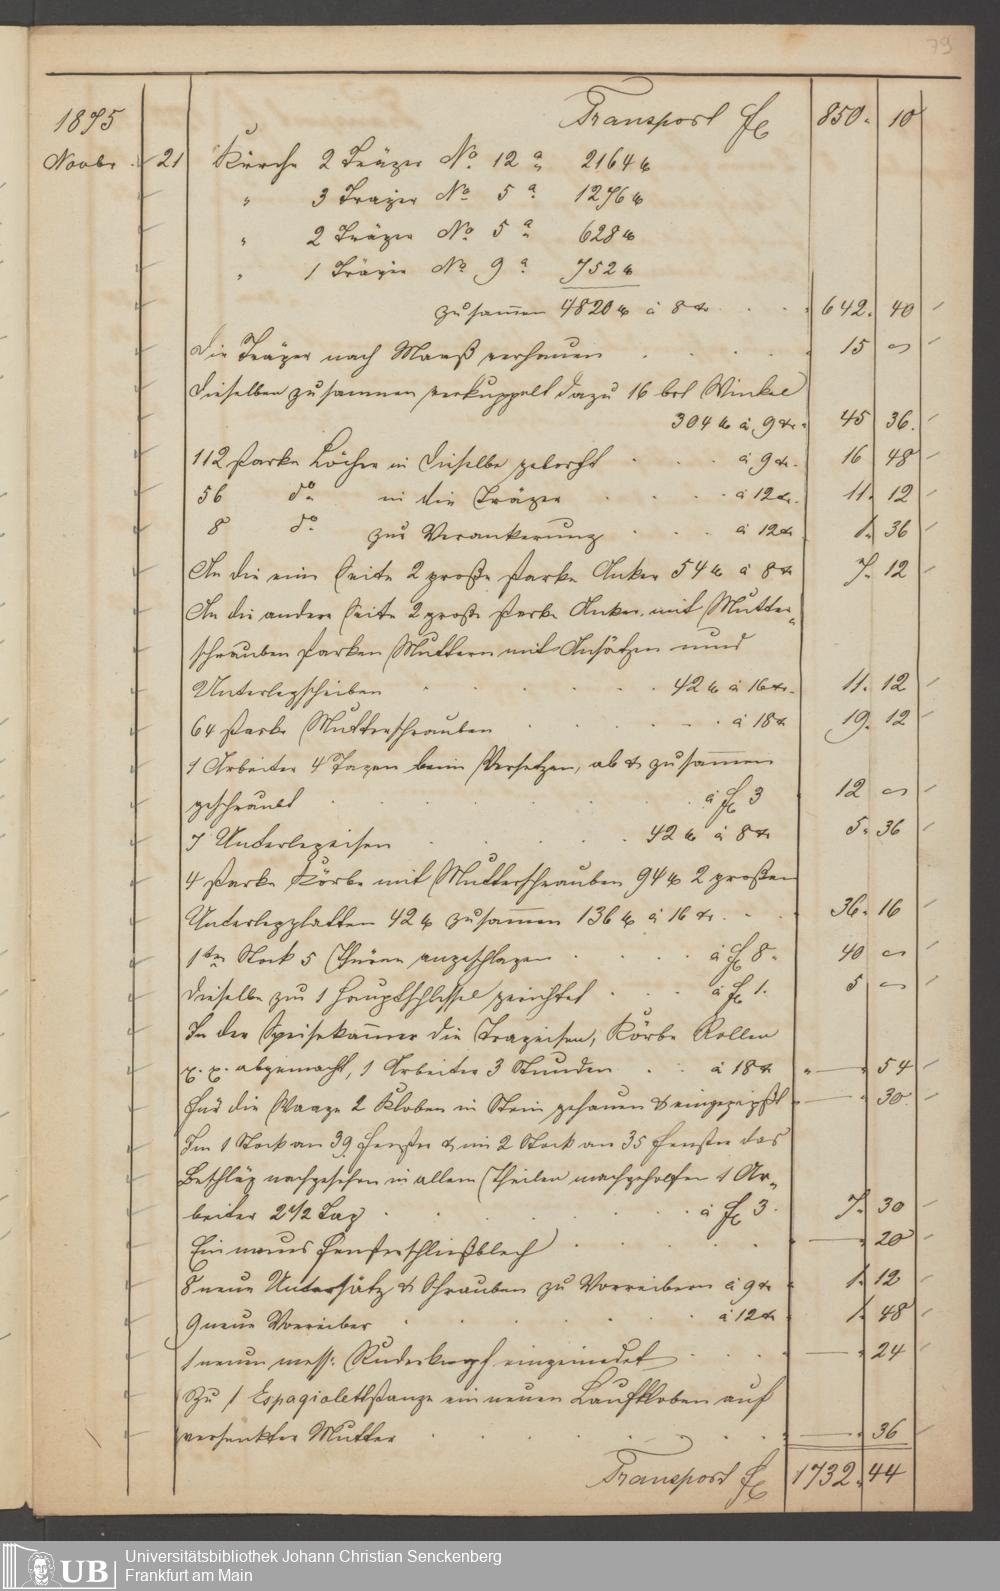 79
Transport fl 850. 10
1875
Novbr. 21 Küche 2 Träger No. 12 a 2164 ℔
" 3 Träger No. 5 a 1276 ℔
" 2 Träger No. 5 a 628 ℔
" 1 Träger No. 9 a 752 ℔
zusam̅en 4820 ℔ à 8 xr. 642. 40
Die Träger nach Maaß verhauen 15 —
Dieselben zusammen verkuppelt dazu 16 Winkel
304 ℔ à 9 xr. 45 36.
112 starke Löcher in dieselbe gebohrt à 9 xr. 16 48
56 do. in die Träger à 12 xr. 11. 12
8 do. zur Verankerung à 12 xr 1. 36
An die eine Seite 2 große starke Anker 54 ℔ à 8 xr 7. 12
An die andere Seite 2 große starke Anker mit Mutter-
schrauben starken Muttern mit Ansätzen und
Unterlegscheiben 42 ℔ à 16 xr. 11. 12
64 starke Mutterschrauben à 18 xr 19. 12
1 Arbeiter 4 Tagen beim Versetzen, ab & zusam̅en
geschraubt à fl 3 12 —
7 Unterlegeisen 42 ℔ à 8 xr 5. 36
4 starke Körbe mit Mutterschrauben 94 ℔ 2 großen
Unterlegplatten 42 ℔ zusam̅en 136 ℔ à 16 xr. 36. 16
1ten Stock 5 Thüren angeschlagen à fl 8. 40 —
Dieselbe zu 1 Hauptschlüssel gerichtet à fl 1. 5 —
In der Speisekam̅er die Trageisen, Körbe Rollen
p. p. abgemacht, 1 Arbeiter 3 Stunden à 18 xr " — 54
Für die Waage 2 Kloben in Stein gehauen & eingegipst " — 30.
Im 1 Stock an 39 Fenster & im 2 Stock an 35 Fenster das
Beschläg nachgesehen in allen Theilen nachgeholfen 1 Ar-
beiter 2 1/2 Tag à fl 3. 7. 30
Ein neues Fensterschließblech — 20
8 neue Untersätz & Schrauben zu Vorreibern à 9 xr 1. 12
9 neue Vorreiber à 12 xr 1. 48
1 neuen mess: Ruderknopf eingenietet — 24
Zu 1 Espagiolettstange ein neuen Laufkloben auf
versenkter Mutter — 36
Transport fl 1732. 44
UB
Universitätsbibliothek Johann Christian Senckenberg
Frankfurt am Main